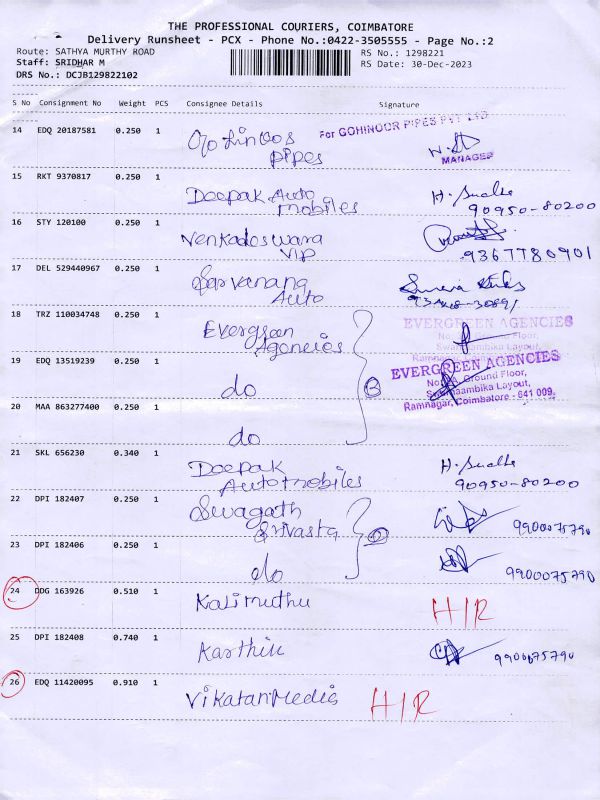 THE PROFESSIONAL COURIERS, COIMBATORE
Delivery Runsheet - PCX - Phone No.:0422-3505555 - Page No.:2
Route: SATHYA MURTHY ROAD RS No.: 1298221
Staff: SRIDHAR M RS Date: 30-Dec-2023
DRS No.: DCJB129822102
S No Consignment No Weight PCS Consignee Details Signature
14 EDQ 20187581 0.250 1 Pipes For GOHINOOR PIPES PVT LTD
MANAGER
15 RKT 9370817 0.250 1 Deepak Auto
mobiles 90950-80200
16 STY 120100 0.250 1 Venkadeswara
VIP 9367780901
17 DEL 529440967 0.250 1 Sarvanana
Auto
18 TRZ 110034748 0.250 1 Evergreen
Agencies EVERGREEN AGENCIES
Ground Floor,
Swarnaambika Layout,
19 EDQ 13519239 0.250 1 do 3 EVERGREEN AGENCIES
Ground Floor,
Swarnaambika Layout,
Ramnagar, Coimbatore - 641 009.
20 MAA 863277400 0.250 1 do
21 SKL 656230 0.340 1 Deepak
Automobiles 90950-80200
22 DPI 182407 0.250 1 Swagath
Srivasta 2 9900075790
23 DPI 182406 0.250 1 do 9900075790
24 DDG 163926 0.510 1 Kalimuthu H/R
25 DPI 182408 0.740 1 Karthik 9900075790
26 EDQ 11420095 0.910 1 Vikatan Media H/R